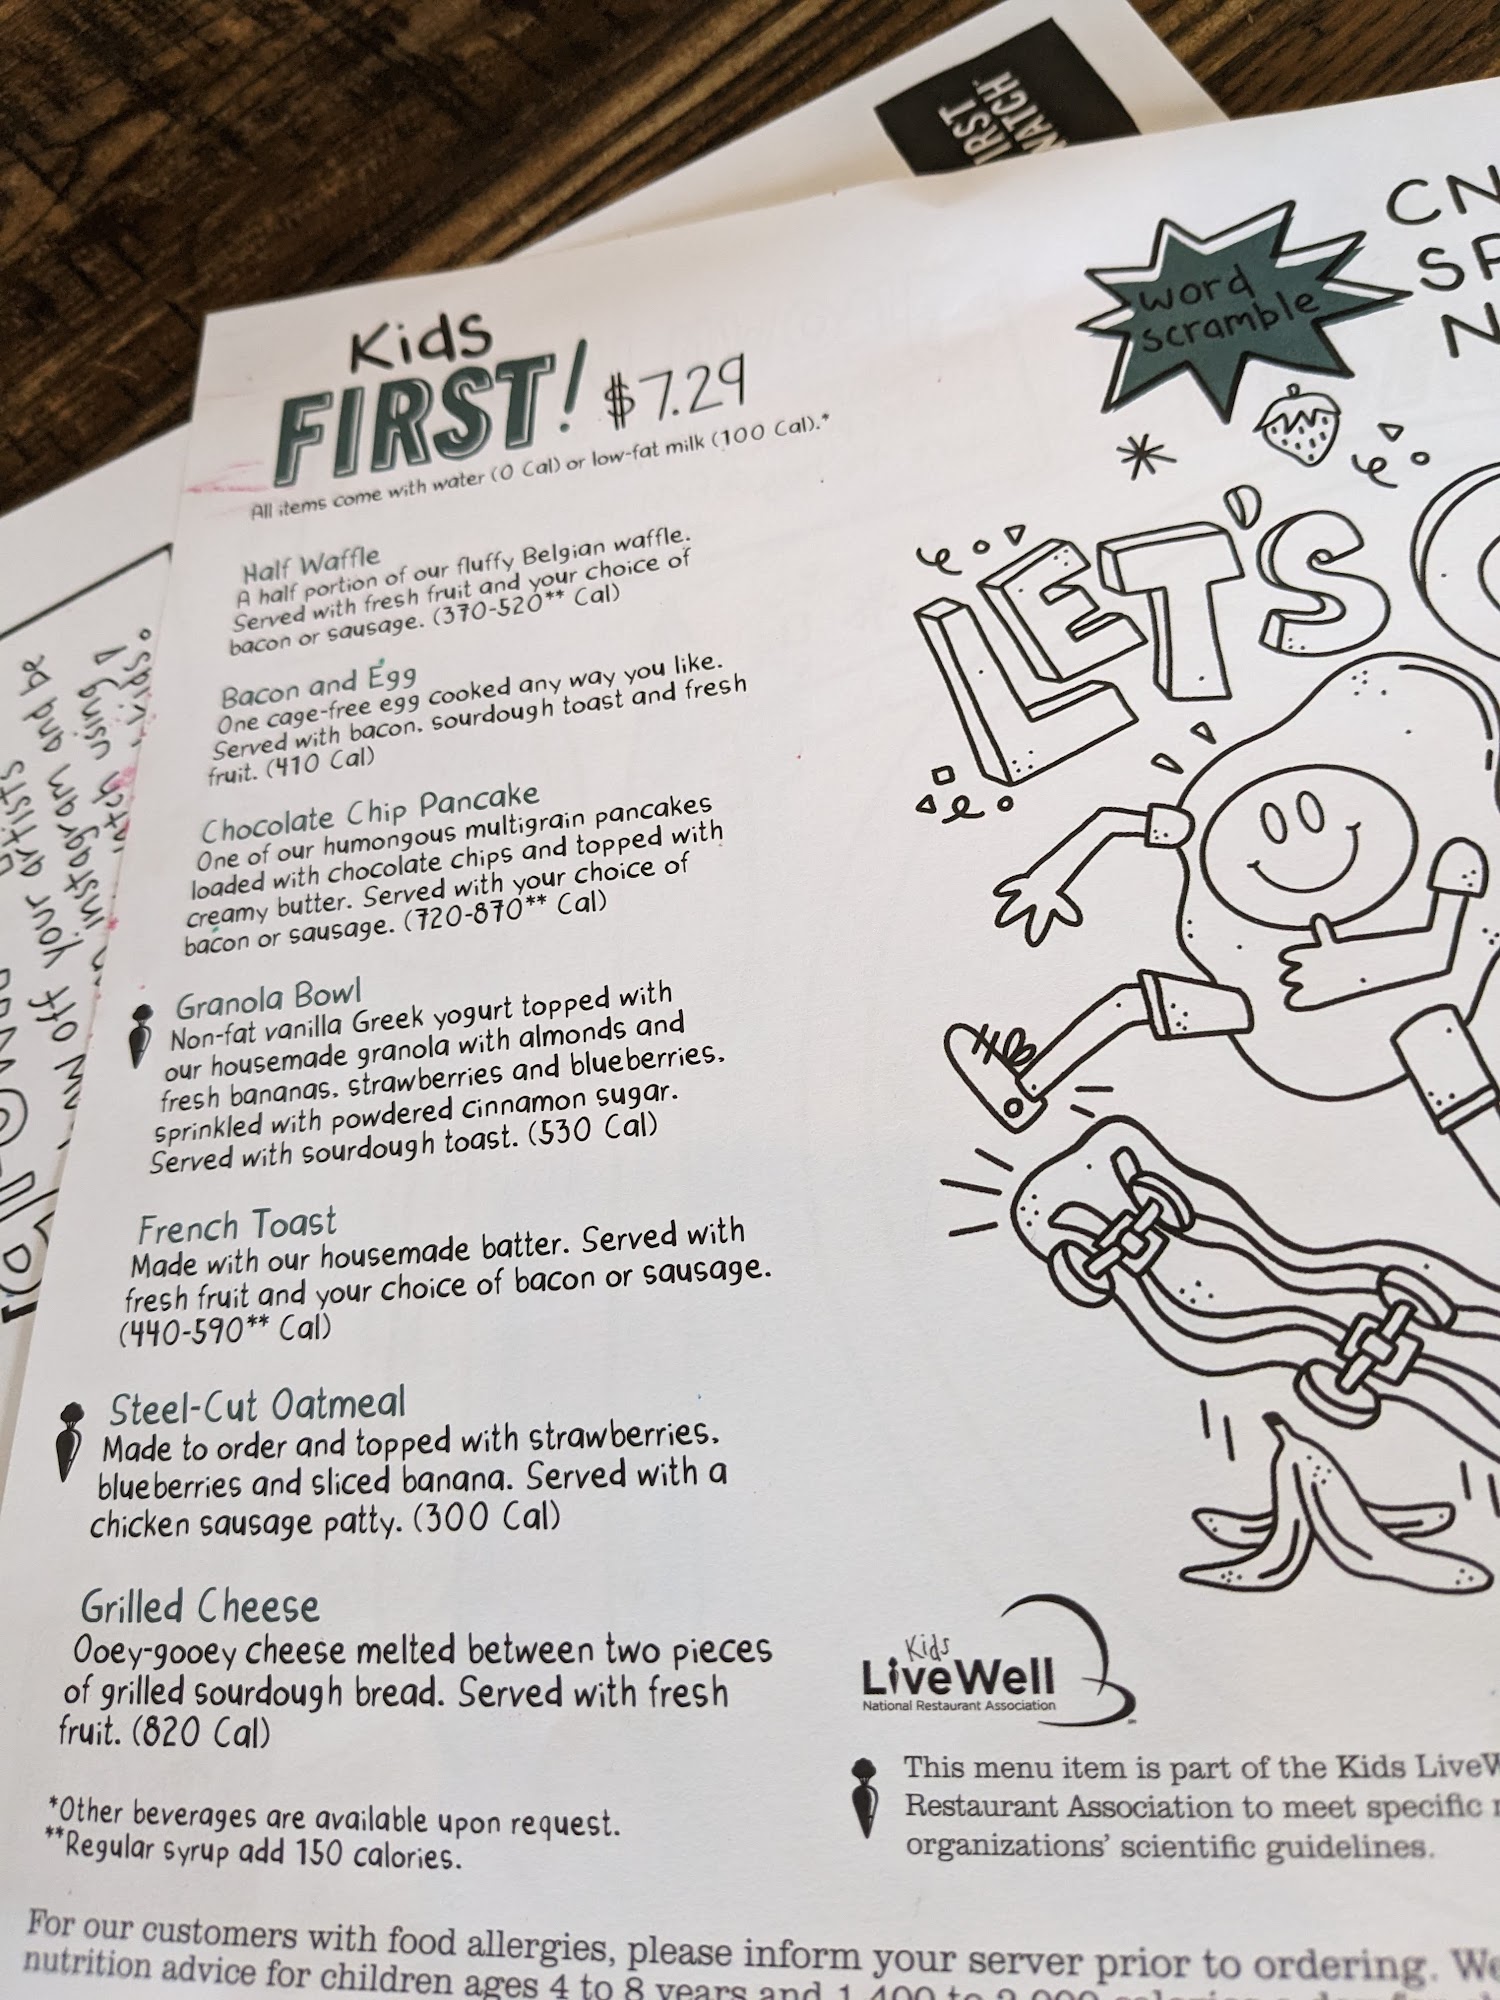 FIRST
WATCH
Kids
FIRST! $7.29
All items come with water (0 Cal) or low-fat milk (100 Cal).*
Half Waffle
A half portion of our fluffy Belgian waffle.
Served with fresh fruit and your choice of
bacon or sausage. (370-520** Cal)
Bacon and Egg
One cage-free egg cooked any way you like.
Served with bacon, sourdough toast and fresh
fruit. (410 Cal)
Chocolate Chip Pancake
One of our humongous multigrain pancakes
loaded with chocolate chips and topped with
creamy butter. Served with your choice of
bacon or sausage. (720-870** Cal)
Granola Bowl
Non-fat vanilla Greek yogurt topped with
our housemade granola with almonds and
fresh bananas, strawberries and blueberries,
sprinkled with powdered cinnamon sugar.
Served with sourdough toast. (530 Cal)
French Toast
Made with our housemade batter. Served with
fresh fruit and your choice of bacon or sausage.
(440-590** Cal)
Steel-Cut Oatmeal
Made to order and topped with strawberries,
blueberries and sliced banana. Served with a
chicken sausage patty. (300 Cal)
Grilled Cheese
Ooey-gooey cheese melted between two pieces
of grilled sourdough bread. Served with fresh
fruit. (820 Cal)
*Other beverages are available upon request.
**Regular syrup add 150 calories.
word
scramble
CN
SP
N
LET'S
Kids
LiveWell
National Restaurant Association
This menu item is part of the Kids LiveW
Restaurant Association to meet specific
organizations' scientific guidelines.
For our customers with food allergies, please inform your server prior to ordering. We
nutrition advice for children ages 4 to 8 years and 1,400 to 2,000 calories a day
off your artists
instagram and
using